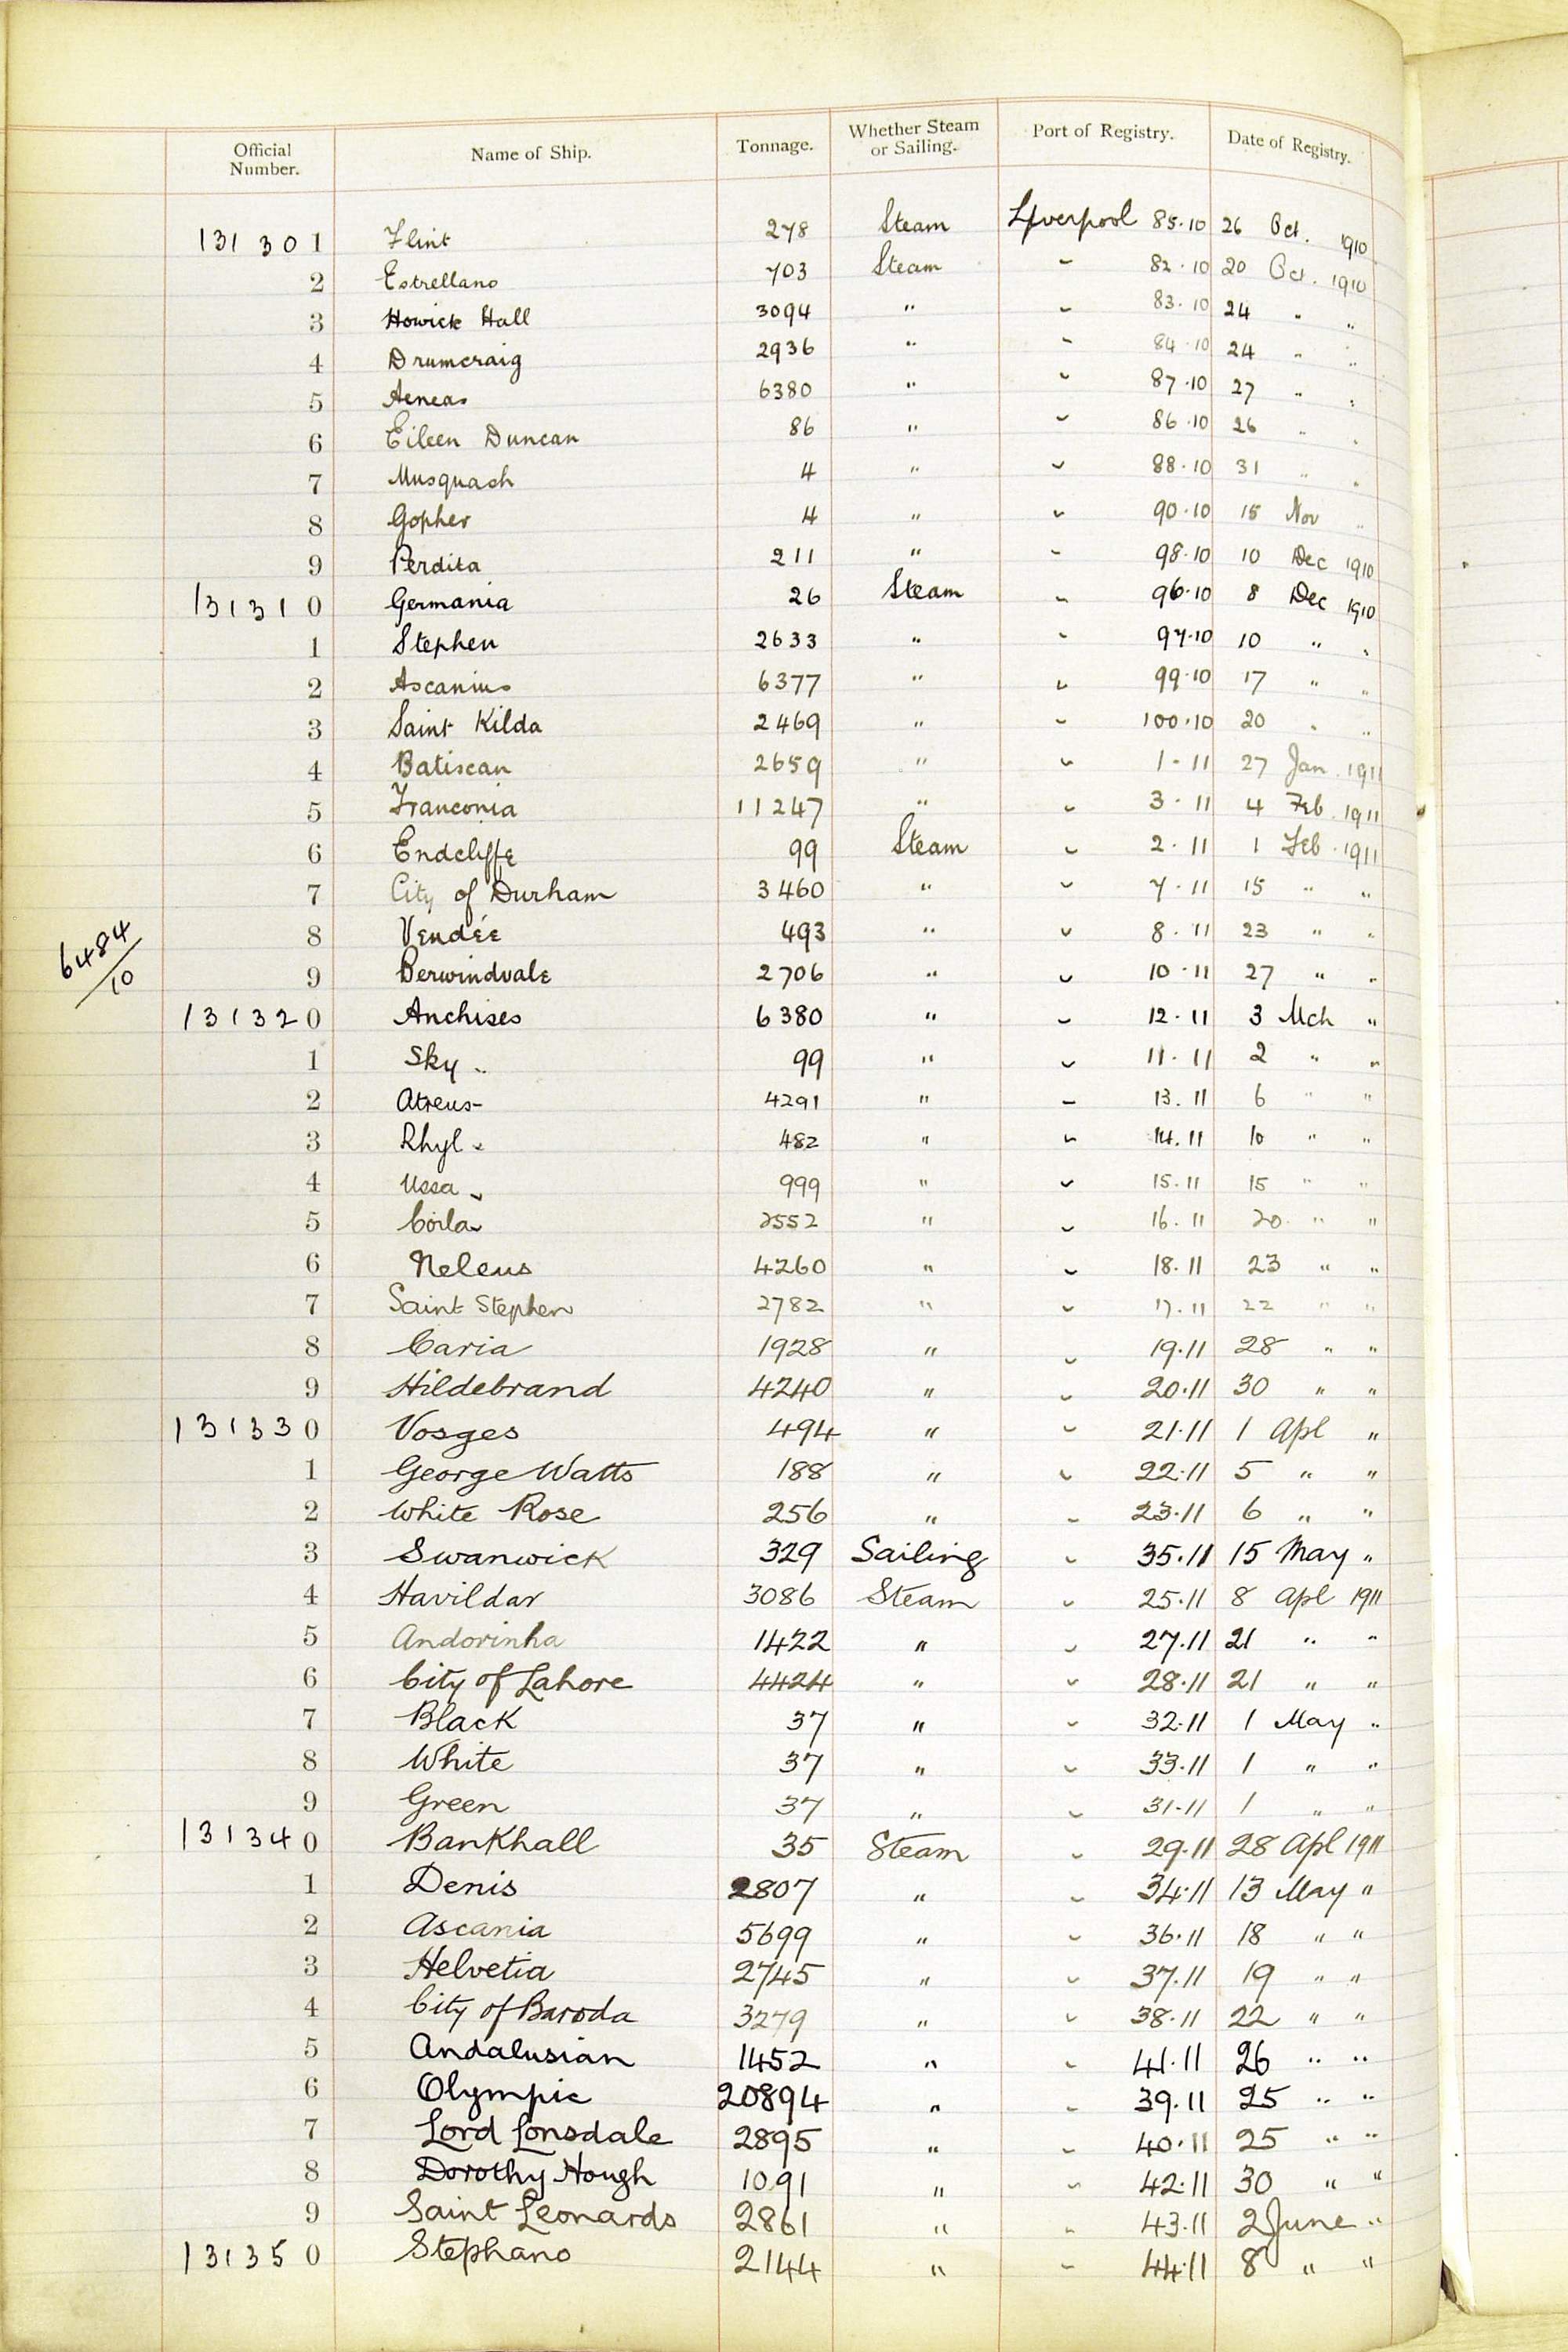 Official Number. Name of Ship. Tonnage. Whether Steam or Sailing. Port of Registry. Date of Registry.
131301 Flint 278 Steam Liverpool 85.10 26 Oct. 1910
2 Estrellano 703 Steam " 82.10 20 Oct. 1910
3 Howick Hall 3094 " " 83.10 24 " "
4 Drumcraig 2936 " " 84.10 24 " "
5 Aeneas 6380 " " 87.10 27 " "
6 Eileen Duncan 86 " " 86.10 26 " "
7 Musquash 4 " " 88.10 31 " "
8 Gopher 4 " " 90.10 15 Nov "
9 Perdita 211 " " 98.10 10 Dec 1910
131310 Germania 26 Steam " 96.10 8 Dec 1910
1 Stephen 2633 " " 97.10 10 " "
2 Ascanius 6377 " " 99.10 17 " "
3 Saint Kilda 2469 " " 100.10 20 " "
4 Batiscan 2659 " " 1.11 27 Jan. 1911
5 Franconia 11247 " " 3.11 4 Feb. 1911
6 Endcliffe 99 Steam " 2.11 1 Feb. 1911
7 City of Durham 3460 " " 7.11 15 " "
8 Vendée 493 " " 8.11 23 " "
6484/10
9 Berwindvale 2706 " " 10.11 27 " "
131320 Anchises 6380 " " 12.11 3 Mch "
1 Sky 99 " " 11.11 2 " "
2 Atreus 4291 " " 13.11 6 " "
3 Rhyl 482 " " 14.11 10 " "
4 Ussa 999 " " 15.11 15 " "
5 Coila 2552 " " 16.11 20 " "
6 Neleus 4260 " " 18.11 23 " "
7 Saint Stephen 2782 " " 17.11 22 " "
8 Caria 1928 " " 19.11 28 " "
9 Hildebrand 4240 " " 20.11 30 " "
131330 Vosges 494 " " 21.11 1 Apl "
1 George Watts 188 " " 22.11 5 " "
2 White Rose 256 " " 23.11 6 " "
3 Swanwick 329 Sailing " 35.11 15 May "
4 Havildar 3086 Steam " 25.11 8 Apl 1911
5 Andorinha 1422 " " 27.11 21 " "
6 City of Lahore 4424 " " 28.11 21 " "
7 Black 37 " " 32.11 1 May "
8 White 37 " " 33.11 1 " "
9 Green 37 " " 31.11 1 " "
131340 Bankhall 35 Steam " 29.11 28 Apl 1911
1 Denis 2807 " " 34.11 13 May "
2 Ascania 5699 " " 36.11 18 " "
3 Helvetia 2745 " " 37.11 19 " "
4 City of Baroda 3279 " " 38.11 22 " "
5 Andalusian 1452 " " 41.11 26 " "
6 Olympic 20894 " " 39.11 25 " "
7 Lord Lonsdale 2895 " " 40.11 25 " "
8 Dorothy Hough 1091 " " 42.11 30 " "
9 Saint Leonards 2861 " " 43.11 2 June "
131350 Stephano 2144 " " 44.11 8 " "